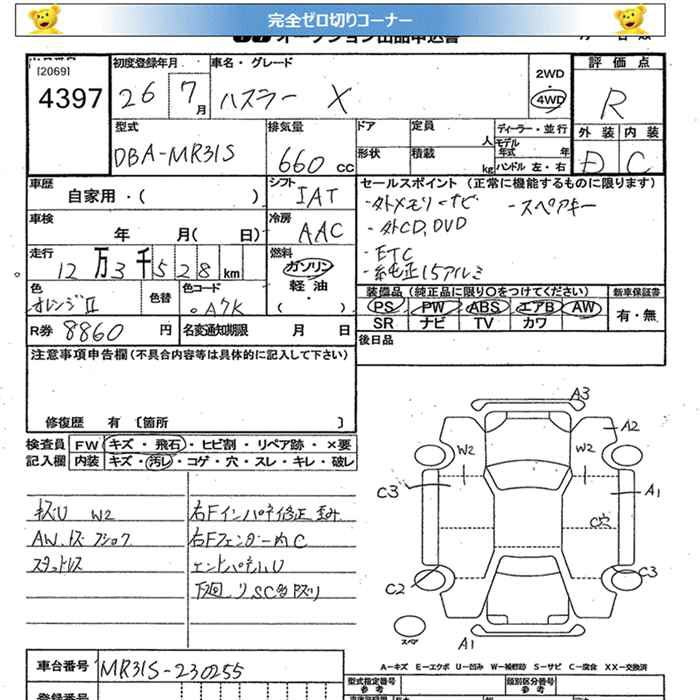 完全ゼロ切りコーナー
オークション出品申込書
[2069]
4397
初度登録年月
26 7月
車名・グレード
ハスラー X
2WD
4WD
評価点
R
外装 内装
D C
型式
DBA-MR31S
排気量
660 CC
ドア
定員
人
形状
積載
kg
ディーラー・並行
モデル年式 年
ハンドル 左・右
車歴
自家用・( )
シフト
IAT
セールスポイント (正常に機能するものに限ります)
・外メモリーナビ ・スペアキー
・外CD,DVD
・ETC
・純正15アルミ
車検
年 月( 日)
冷房
AAC
走行
12万3千528km
燃料
ガソリン
軽油
・( )
色
オレンジII
色替
色コード
A7K
装備品 (純正品に限り○をつけてください)
PS PW ABS エアB AW
SR ナビ TV カワ
新車保証書
有・無
R券 8860 円
名変通知期限 月 日
後日品
注意事項申告欄(不具合内容等は具体的に記入して下さい)
修復歴 有 〔箇所 〕
検査員記入欄
FW キズ・飛石・ヒビ割・リペア跡・×要
内装 キズ・汚レ・コゲ・穴・スレ・キレ・破レ
キズU W2
AW.キズ フショク
スタッドレス
右Fインパネ修正歪み
右Fフェンダー内C
エンドパネルU
下回り SC多 Pズリ
A3
A2
W2
W2
C3
A1
C穴
C2
C3
スペア
A1
A-キズ E-エクボ U-凹み W-補修跡 S-サビ C-腐食 XX-交換済
車台番号
MR31S-230255
登録番号
型式指定番号
参考
類別区分番号
参考